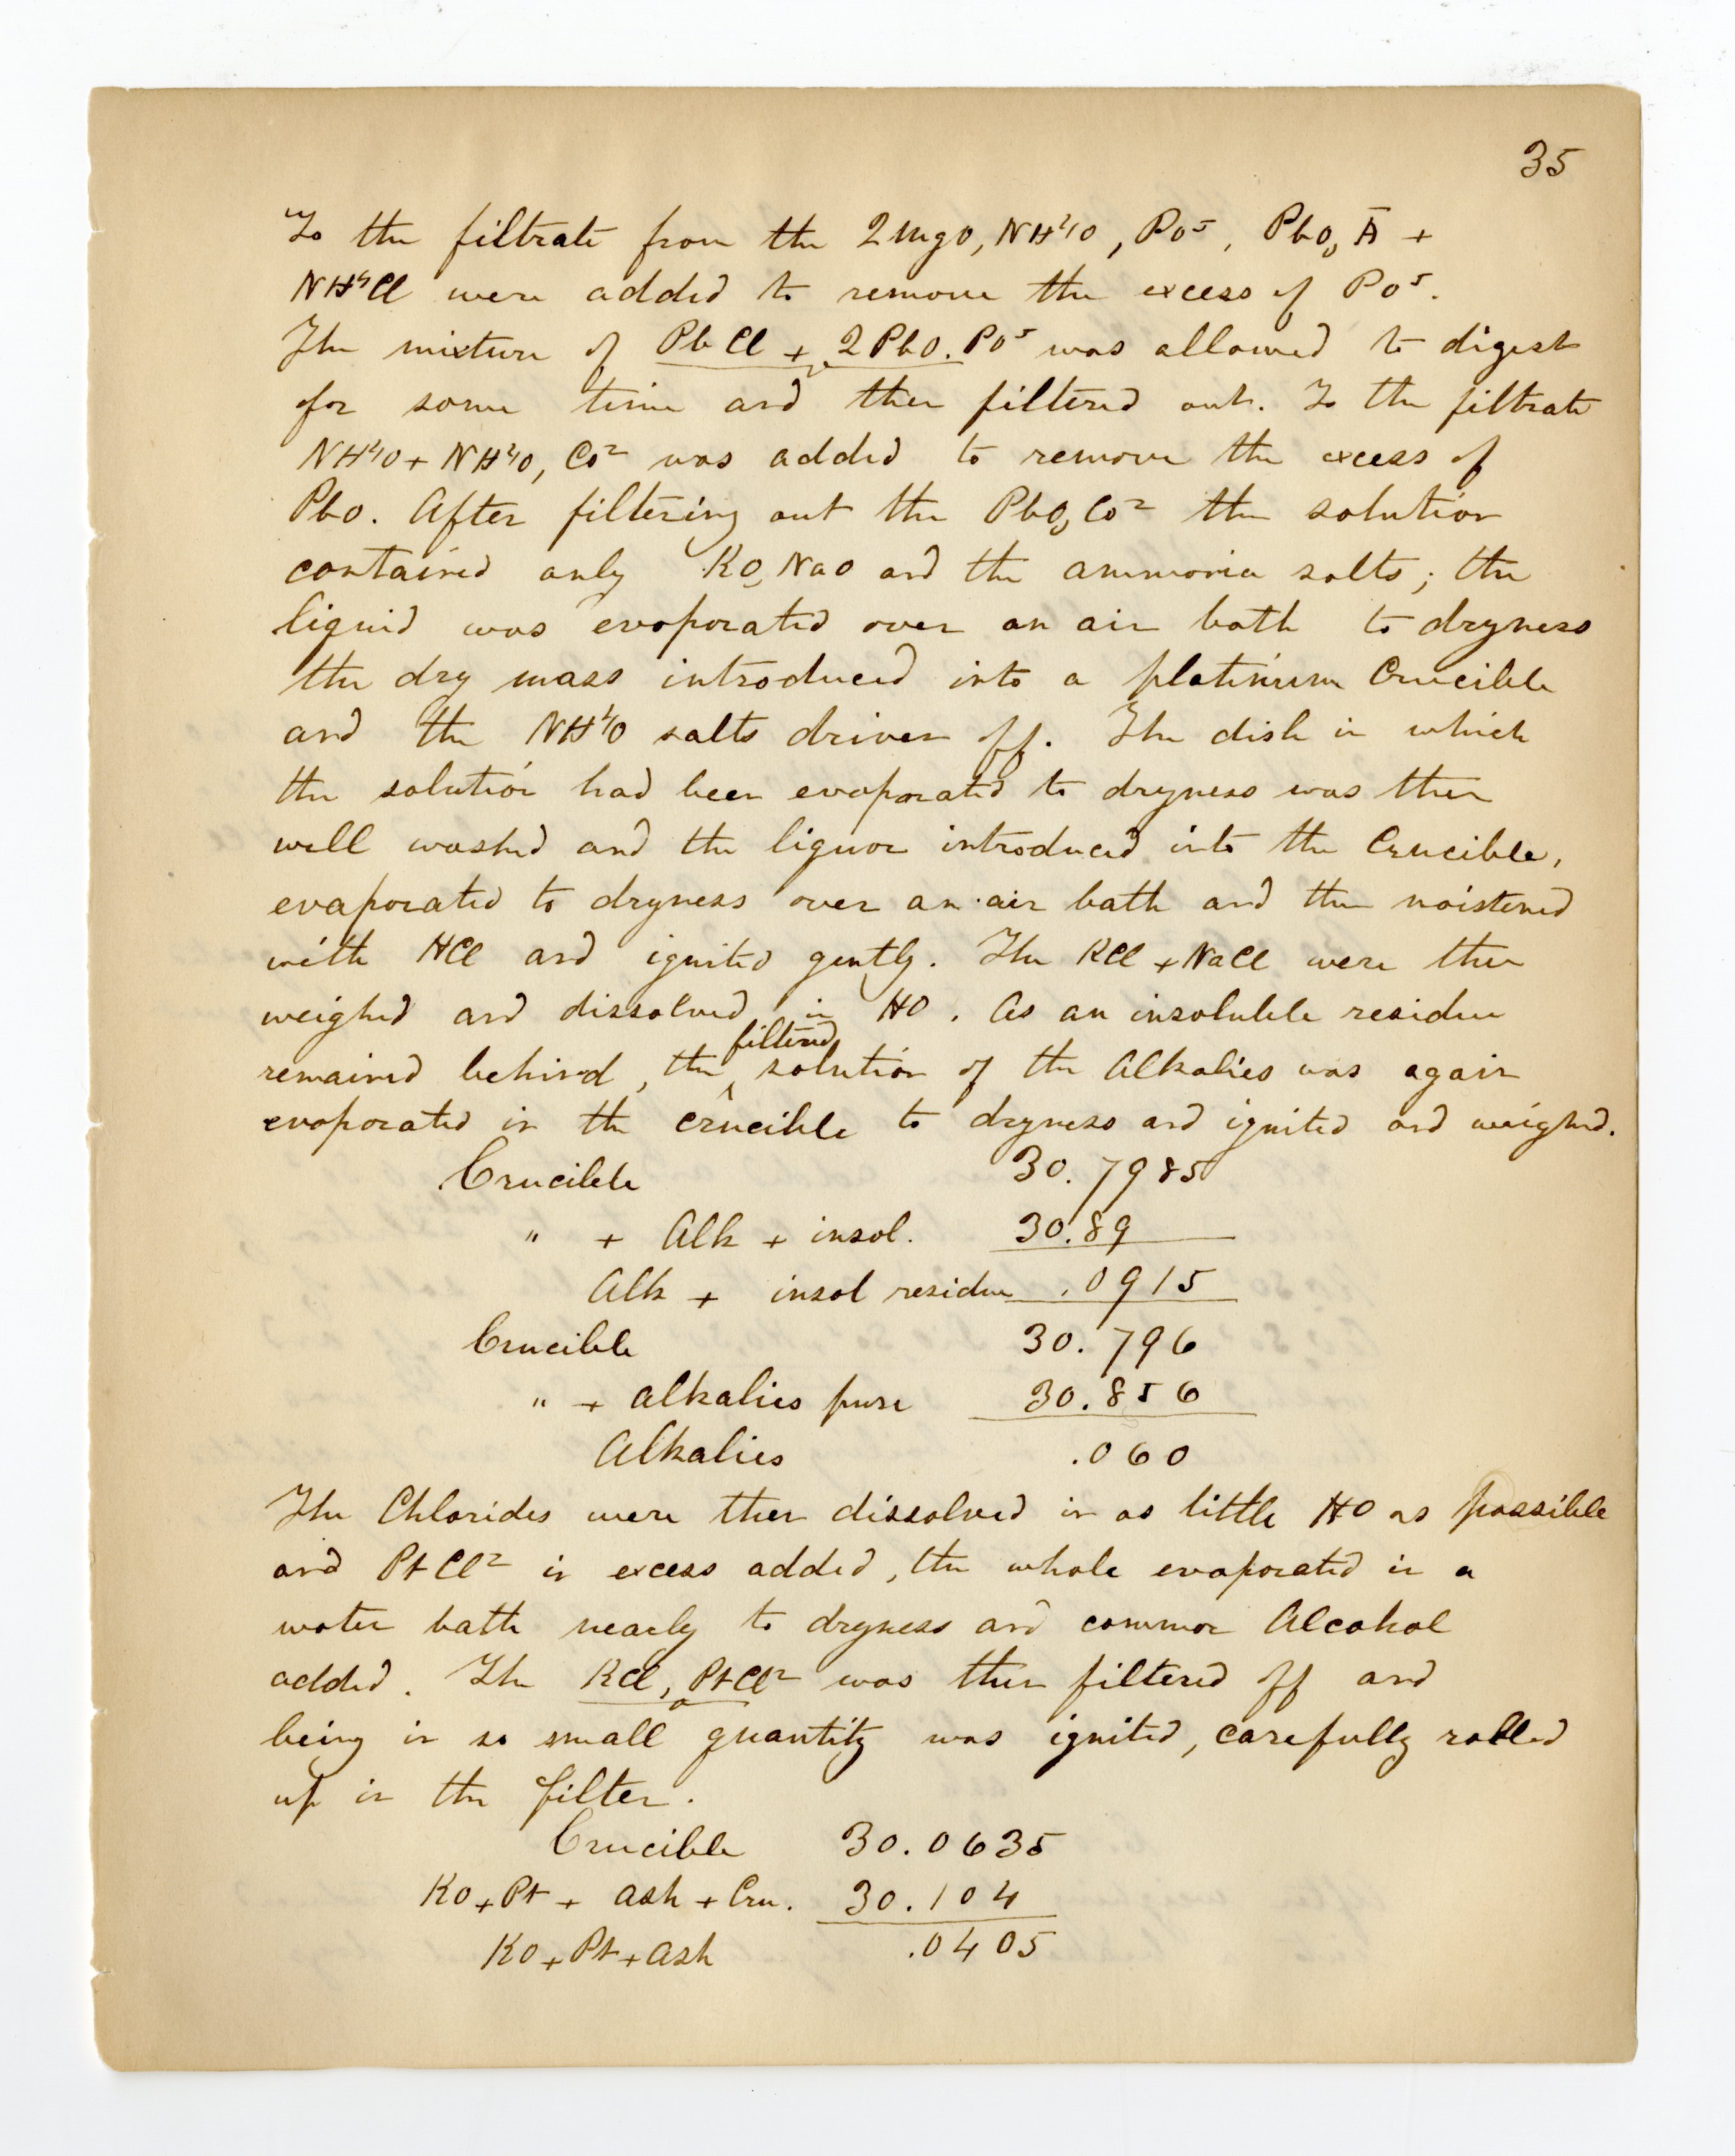 35
To the filtrate from the 2MgO, NH⁴O, PO⁵, PbO, Ā +
NH⁴Cl were added to remove the excess of PO⁵.
The mixture of PbCl + 2PbO. PO⁵ was allowed to digest
for some time and then filtered out. To the filtrate
NH⁴O + NH⁴O, CO² was added to remove the excess of
PbO. After filtering out the PbO, CO² the solution
contained only KO, NaO and the ammonia salts; the
liquid was evaporated over an air bath to dryness
the dry mass introduced into a platinum Crucible
and the NH⁴O salts driven off. The dish in which
the solution had been evaporated to dryness was then
well washed and the liquor introduced into the Crucible,
evaporated to dryness over an air bath and then moistened
with HCl and ignited gently. The KCl + NaCl were then
weighed and dissolved in HO. As an insoluble residue
remained behind, the filtered solution of the Alkalies was again
evaporated in the crucible to dryness and ignited and weighed.
Crucible 30.7985
" + Alk + insol. 30.89
Alk + insol residue .0915
Crucible 30.796
" + alkalies pure 30.856
Alkalies .060
The Chlorides were then dissolved in as little HO as possible
and PtCl² in excess added, the whole evaporated in a
water bath nearly to dryness and common Alcohol
added. The KCl, PtCl² was then filtered off and
being in so small quantity was ignited, carefully rolled
up in the filter.
Crucible 30.0635
KO + Pt + ash + Cru. 30.104
KO + Pt + ash .0405